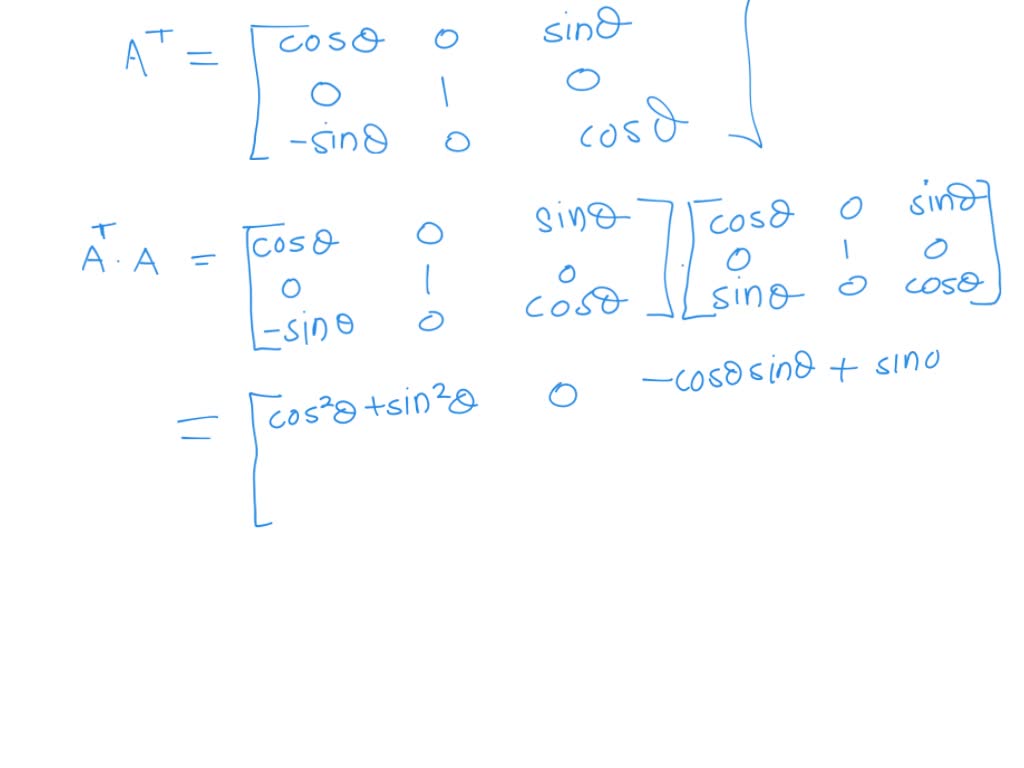 Aᵀ = [cosθ 0 sinθ
0 1 0
-sinθ 0 cosθ]
Aᵀ · A = [cosθ 0 sinθ] [cosθ 0 sinθ]
0 1 0 0 1 0
-sinθ 0 cosθ sinθ 0 cosθ
= [cos²θ + sin²θ 0 -cosθ sinθ + sin0